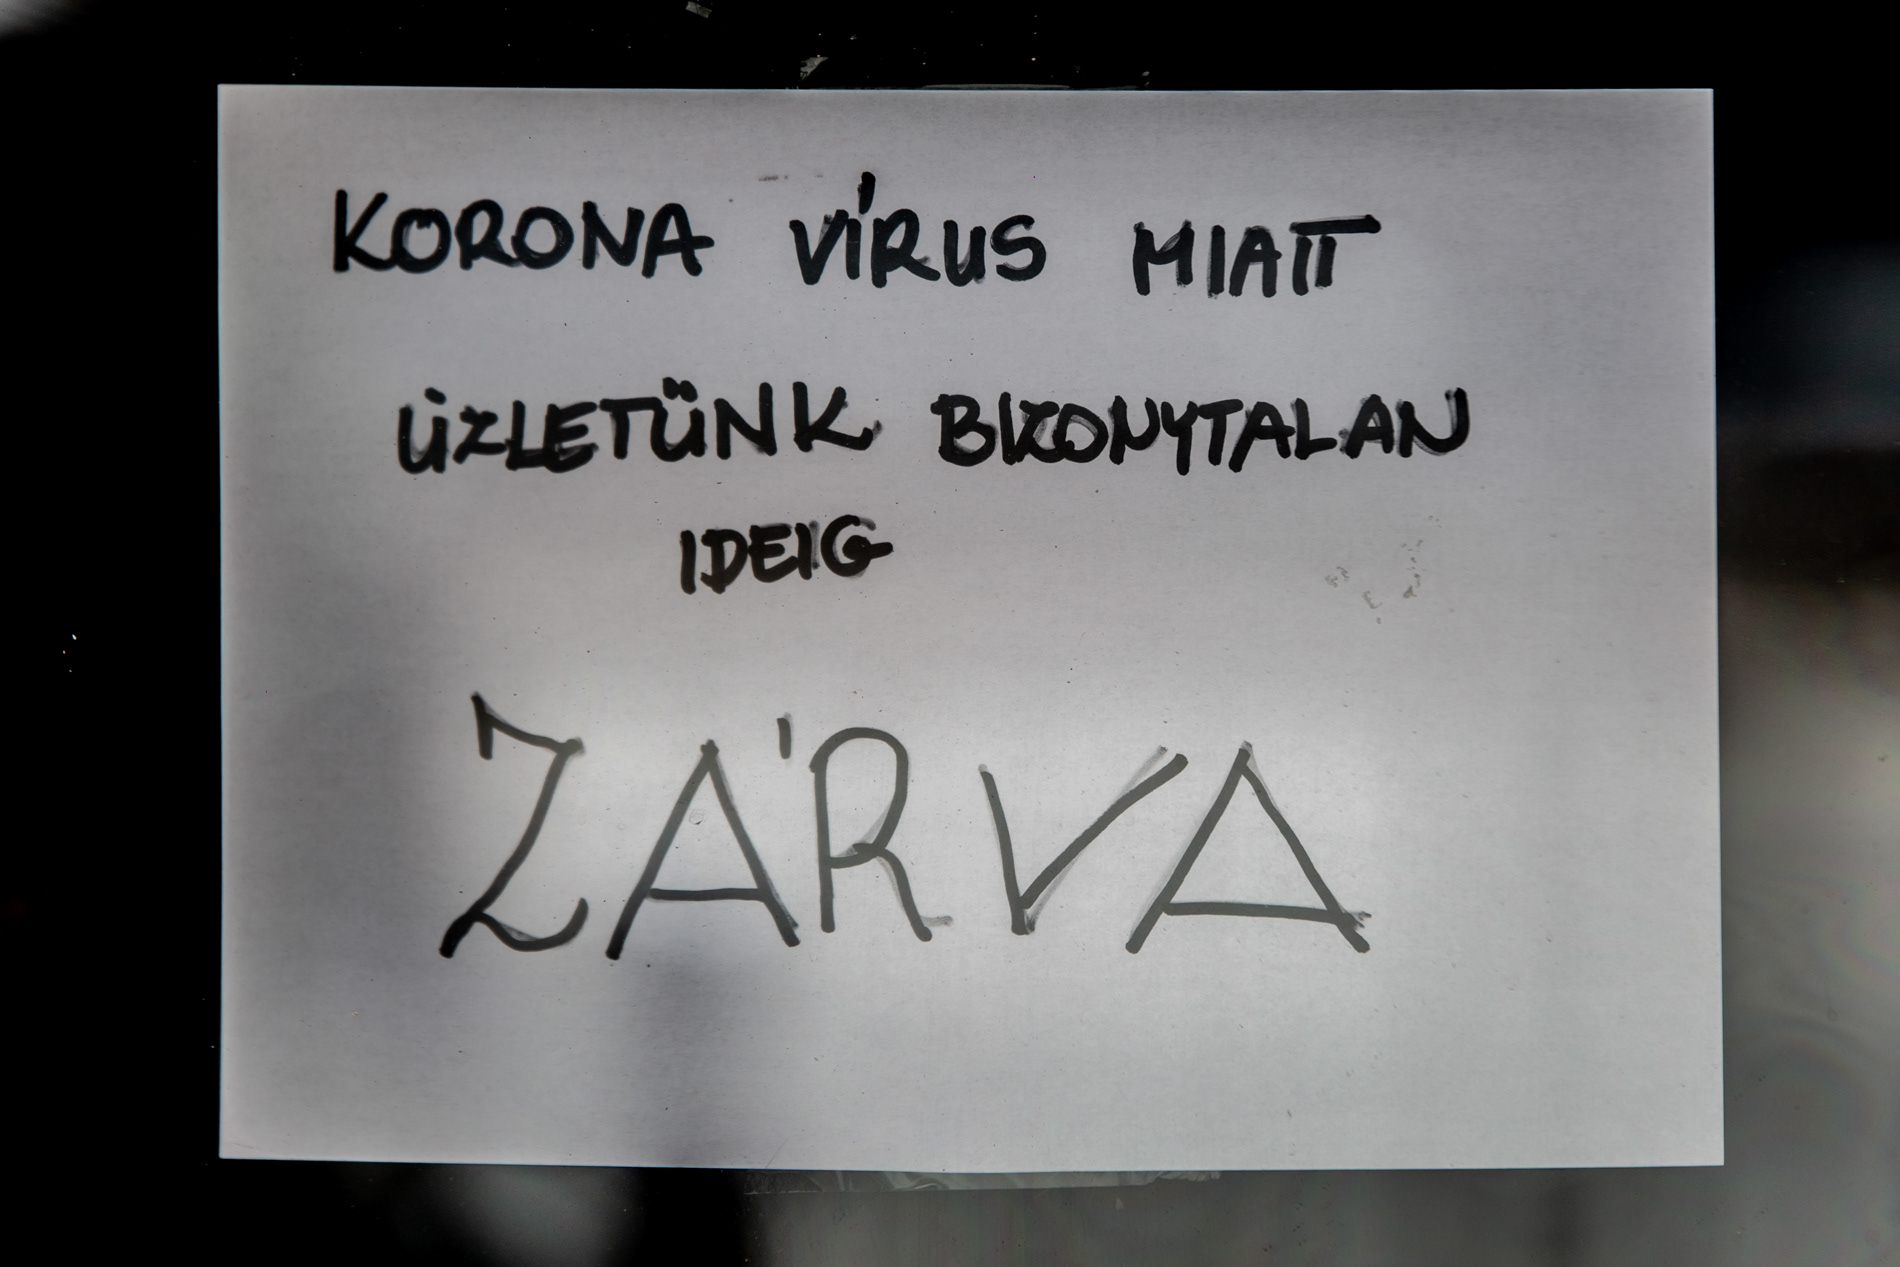 KORONA VÍRUS MIATT
ÜZLETÜNK BIZONYTALAN
IDEIG
ZÁRVA